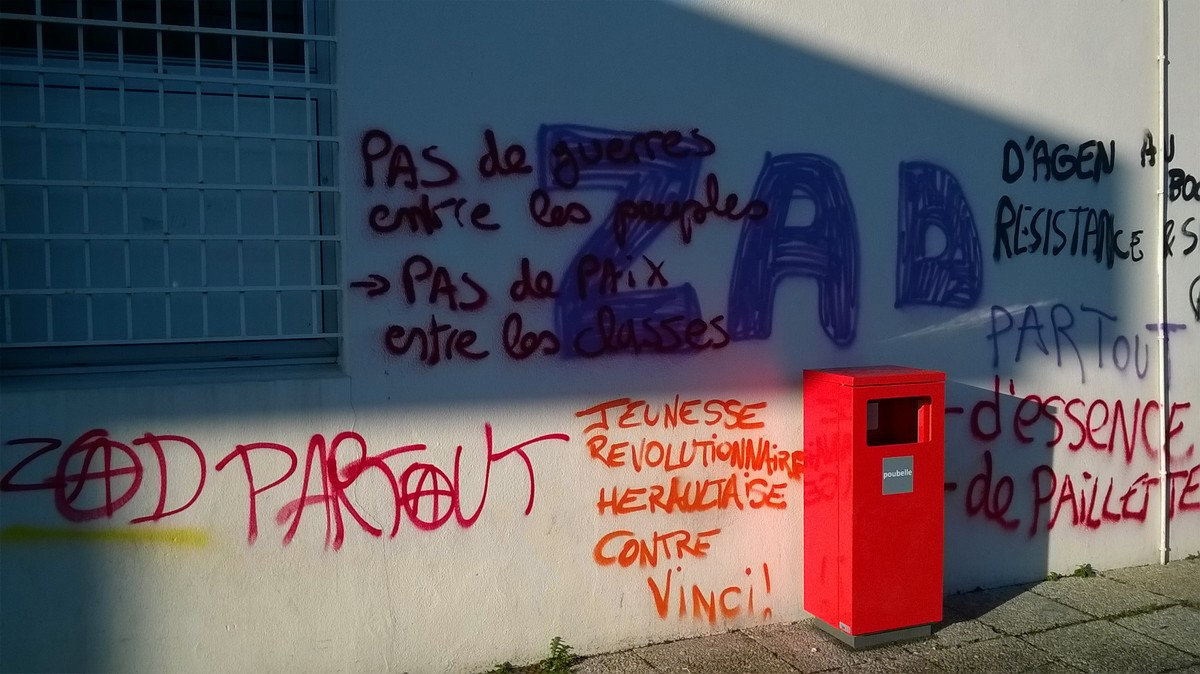 PAS de guerres
entre les peuples
→ PAS de PAIX
entre les classes
ZAD
D'AGEN AU
RESISTANCE & S
PARTOUT
d'essence
de PAILLETTE
ZAD PARTOUT
JEUNESSE
REVOLUTIONNAIRE
HERAULTAISE
CONTRE
VINCI!
poubelle